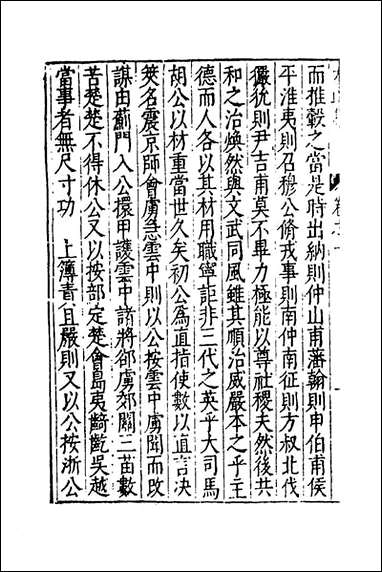 而推轂之當是時出納則仲山甫藩翰則申伯甫侯
平淮夷則召穆公脩戎事則南仲南征則方叔北伐
玁狁則尹吉甫莫不畢力極能以尊社稷夫然後共
和之治煥然與文武同風雖其順治威嚴本之乎主
德而人各以其材用職寧詎非三代之英乎大司馬
胡公以材重當世久矣初公為直指使數以直言决
筴名震京師會虜急雲中則以公按雲中虜聞而改
謀由薊門入公擐甲護雲中諸將郤虜郊關三苗數
苦楚楚不得休公又以按部定楚會島夷齮齕吳越
當事者無尺寸功 上簿責且嚴則又以公按浙公